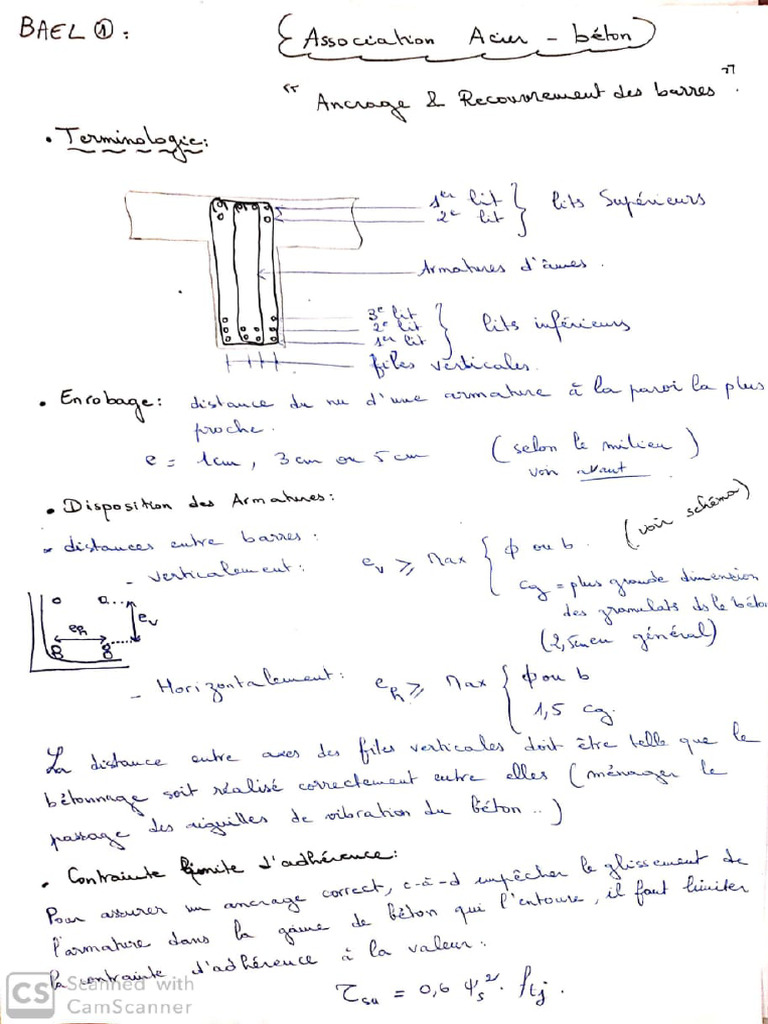 BAEL ①:
Association Acier - béton
" Ancrage & Recouvrement des barres ".
• Terminologie:
1er lit } lits Supérieurs
2e lit
Armatures d'âmes.
3e lit
2e lit } lits inférieurs
1er lit
files verticales.
• Enrobage: distance du nu d'une armature à la paroi la plus
proche.
e = 1cm, 3 cm ou 5 cm (selon le milieu)
voir
• Disposition des Armatures:
distances entre barres:
- verticalement: ev ⩾ Max { φ ou b. (voir schéma)
cg = plus grande dimension
des granulats ds le béto
(2,5cm en général)
eh
ev
- Horizontalement: eh ⩾ Max { φ ou b
1,5 cg.
La distance entre axes des files verticales doit être telle que le
bétonnage soit réalisé correctement entre elles (ménager le
passage des aiguilles de vibration du béton ..)
• Contrainte limite d'adhérence:
Pour assurer un ancrage correct, c-à-d empêcher le glissement de
l'armature dans la gaine de béton qui l'entoure, il faut limiter
la contrainte d'adhérence à la valeur:
τsu = 0,6 ψs². ftj.
CS Scanned with
CamScanner